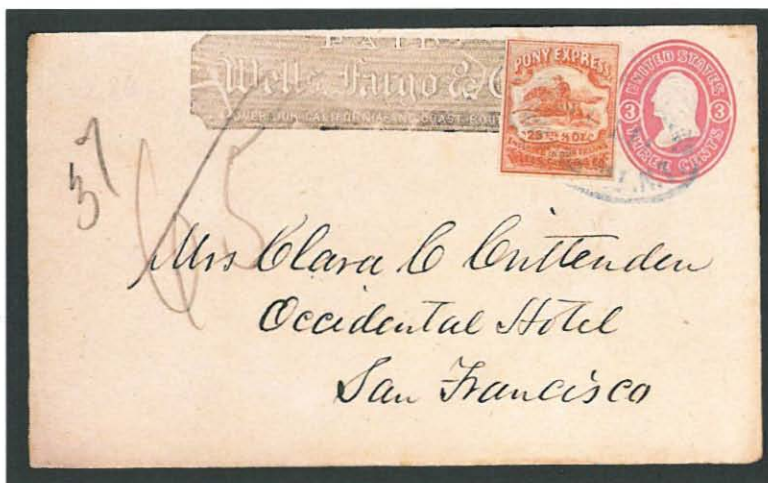 PAID
Wells, Fargo &
OVER OUR CALIFORNIA AND COAST ROUTES
PONY EXPRESS
UNITED STATES
3 3
THREE CENTS
37
65
Mrs Clara C Crittenden
Occidental Hotel
San Francisco